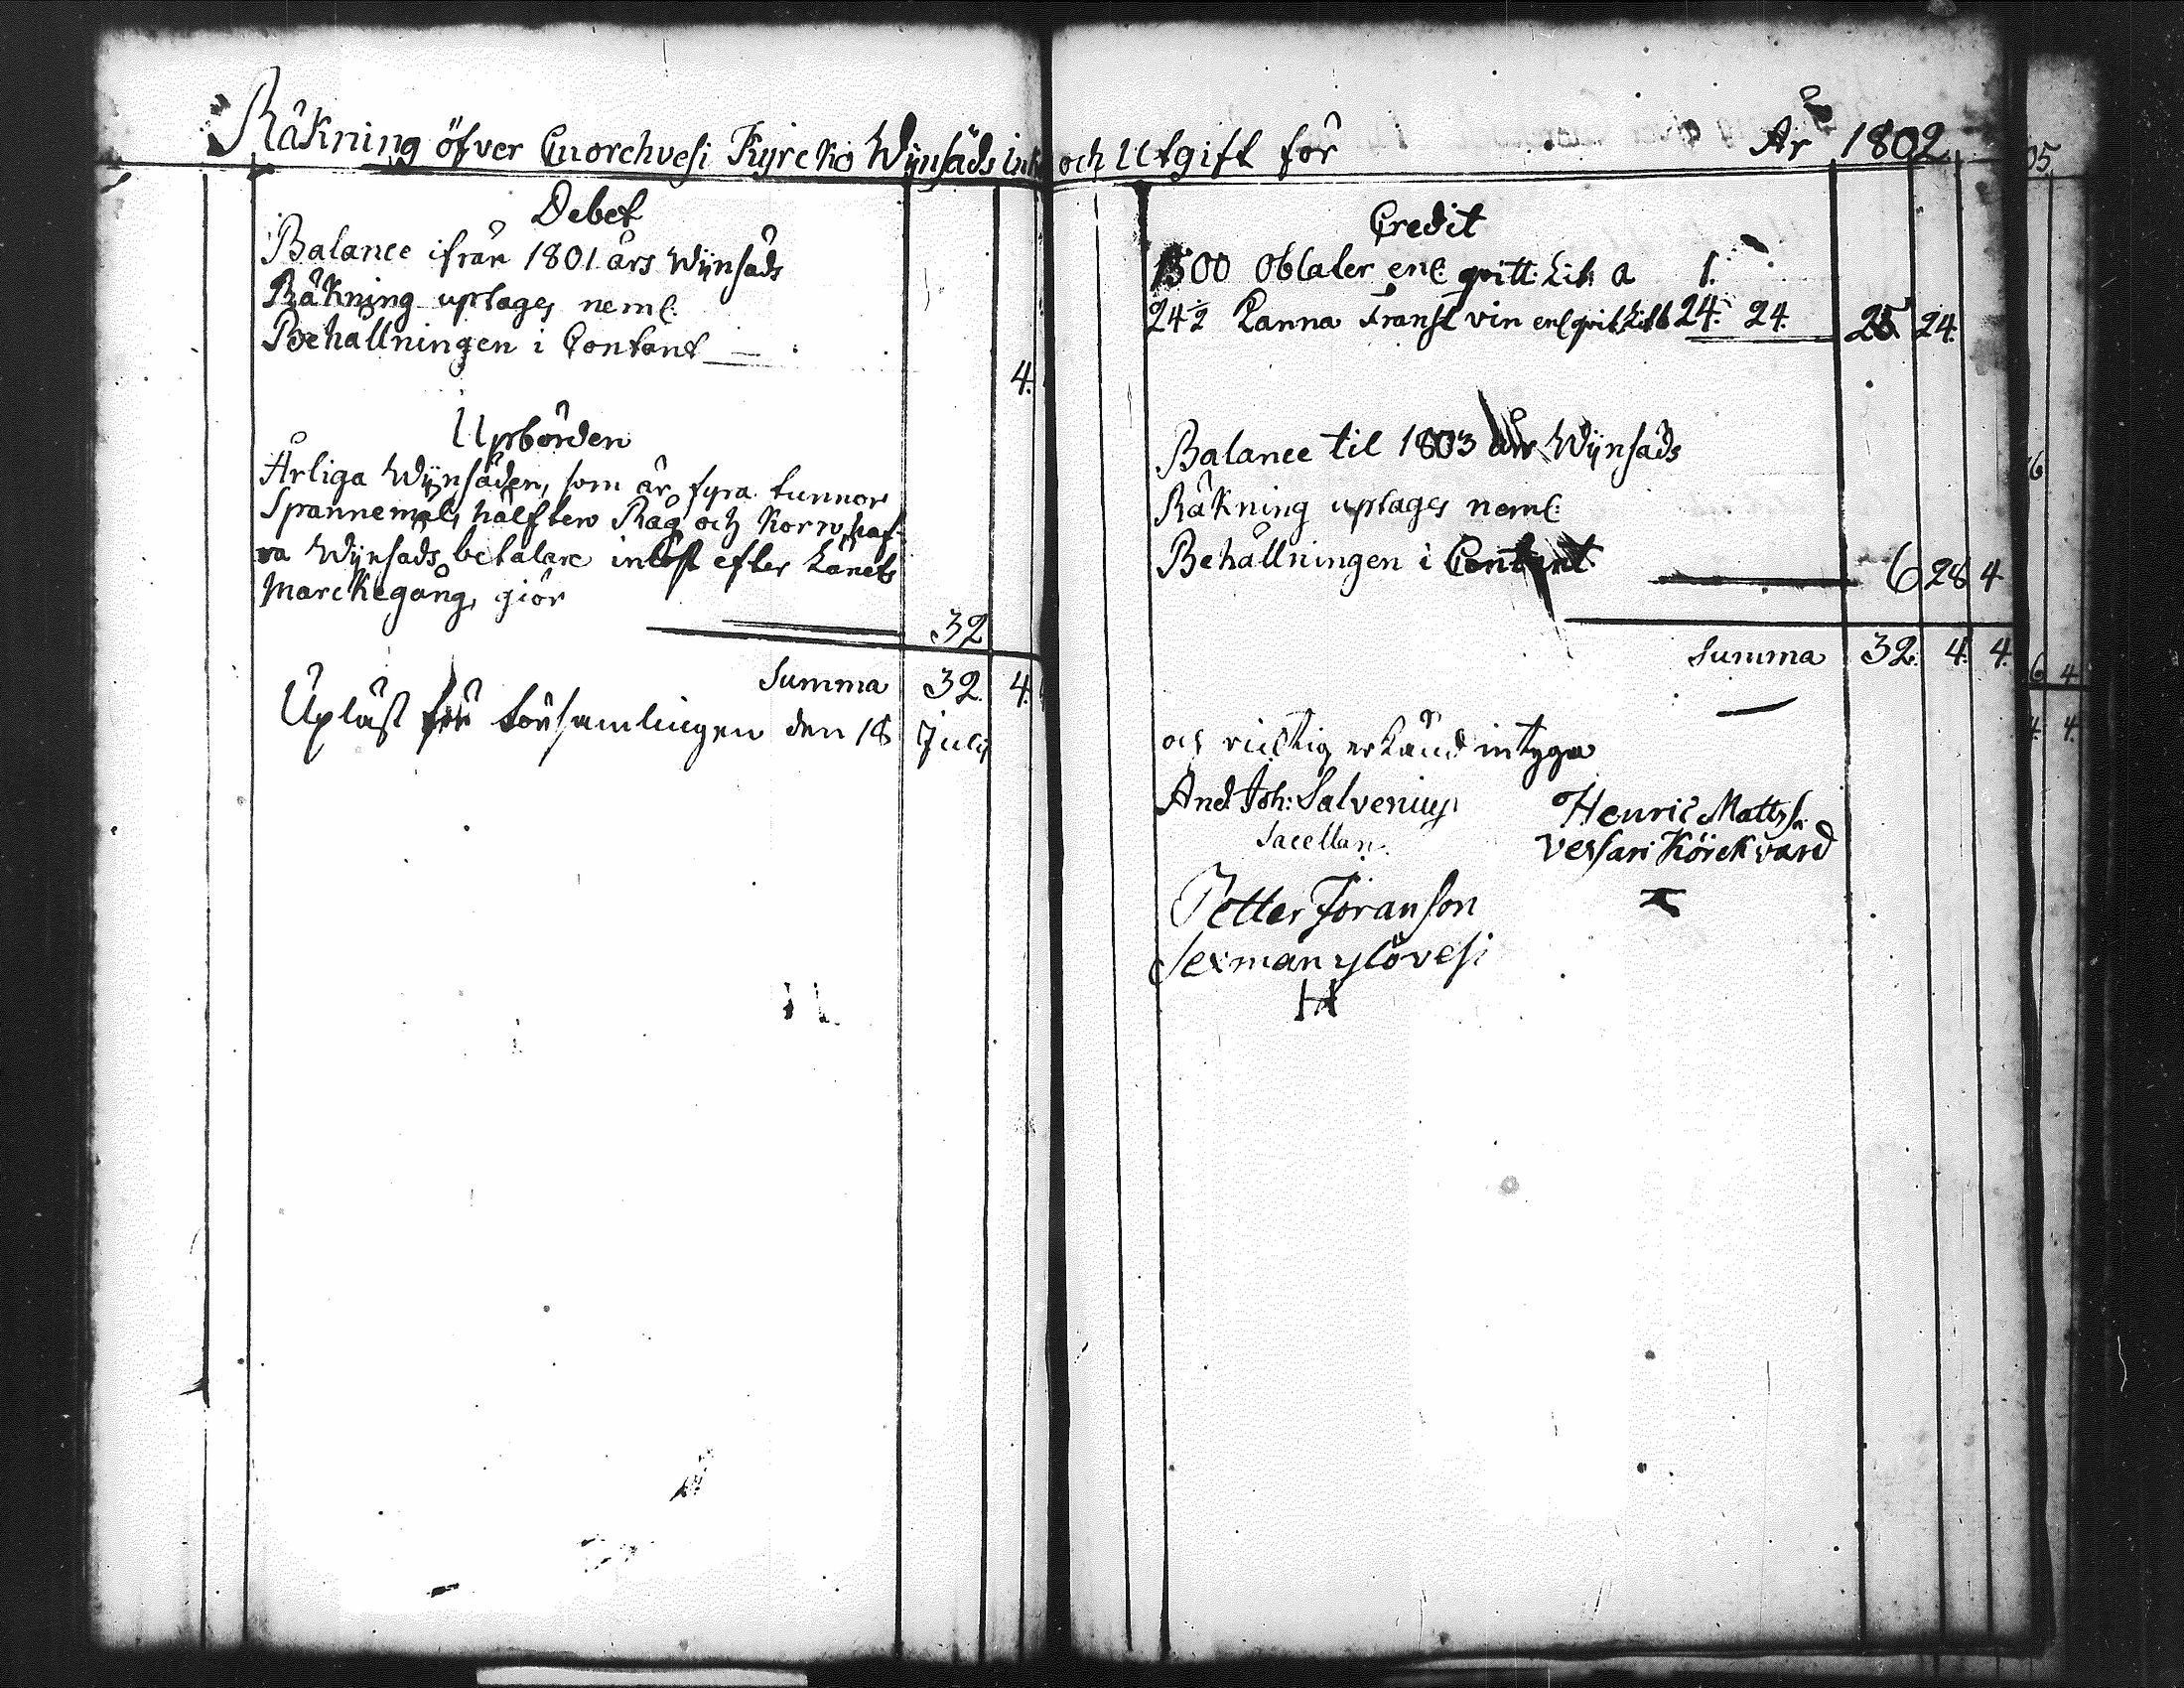 Räkning öfver Enorehvesi Kyrcko Wijnsäds Ink
Debet
Balance ifrån 1801 års Wijnsäds
Räkning uptages neml:
Behållningen i Contant 4.
Upbörden
Årliga Wijnsäden, som är fyra tunnor
Spannemål, hälften Råg och Korn, haf-
va Wijnsäds betalare inlöst efter Länets
Marckegång, giör 32
Summa 32. 4.
Upläst för församlingen den 18 July
och Utgift för År 1802
Credit
1500 Oblater enl: qvitt: Litt: a 1.
24½ Kanna Franst vin enl qvit Litt b 24. 24. 25. 24.
Balance til 1803 års Wijnsäds
Räkning uptages neml:
Behållningen i Contant 6 28 4
Summa 32. 4. 4.
och rigtig erkänd intyga
And. Joh: Salvenius
Sacellan.
Henric Mattss:
Vesjari Körckvärd
Petter Jöranson
Sexman ylövesi
H